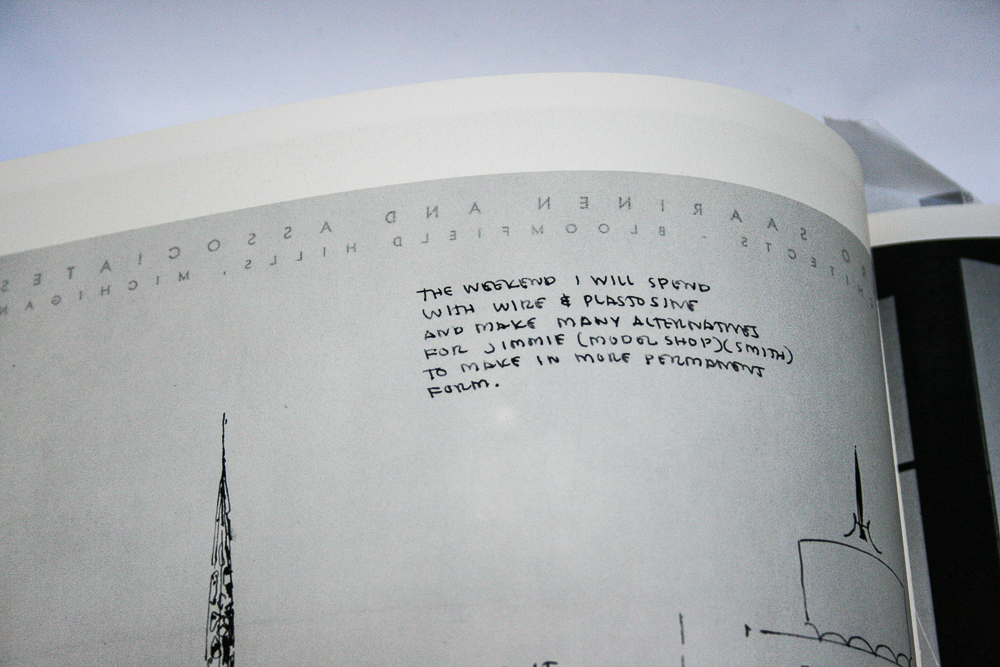 O SAARINEN AND ASSOCIATES
ITECTS - BLOOMFIELD HILLS, MICHIGAN
THE WEEKEND I WILL SPEND
WITH WIRE & PLASTOSINE
AND MAKE MANY ALTERNATIVES
FOR JIMMIE (MODEL SHOP)(SMITH)
TO MAKE IN MORE PERMANENT
FORM.